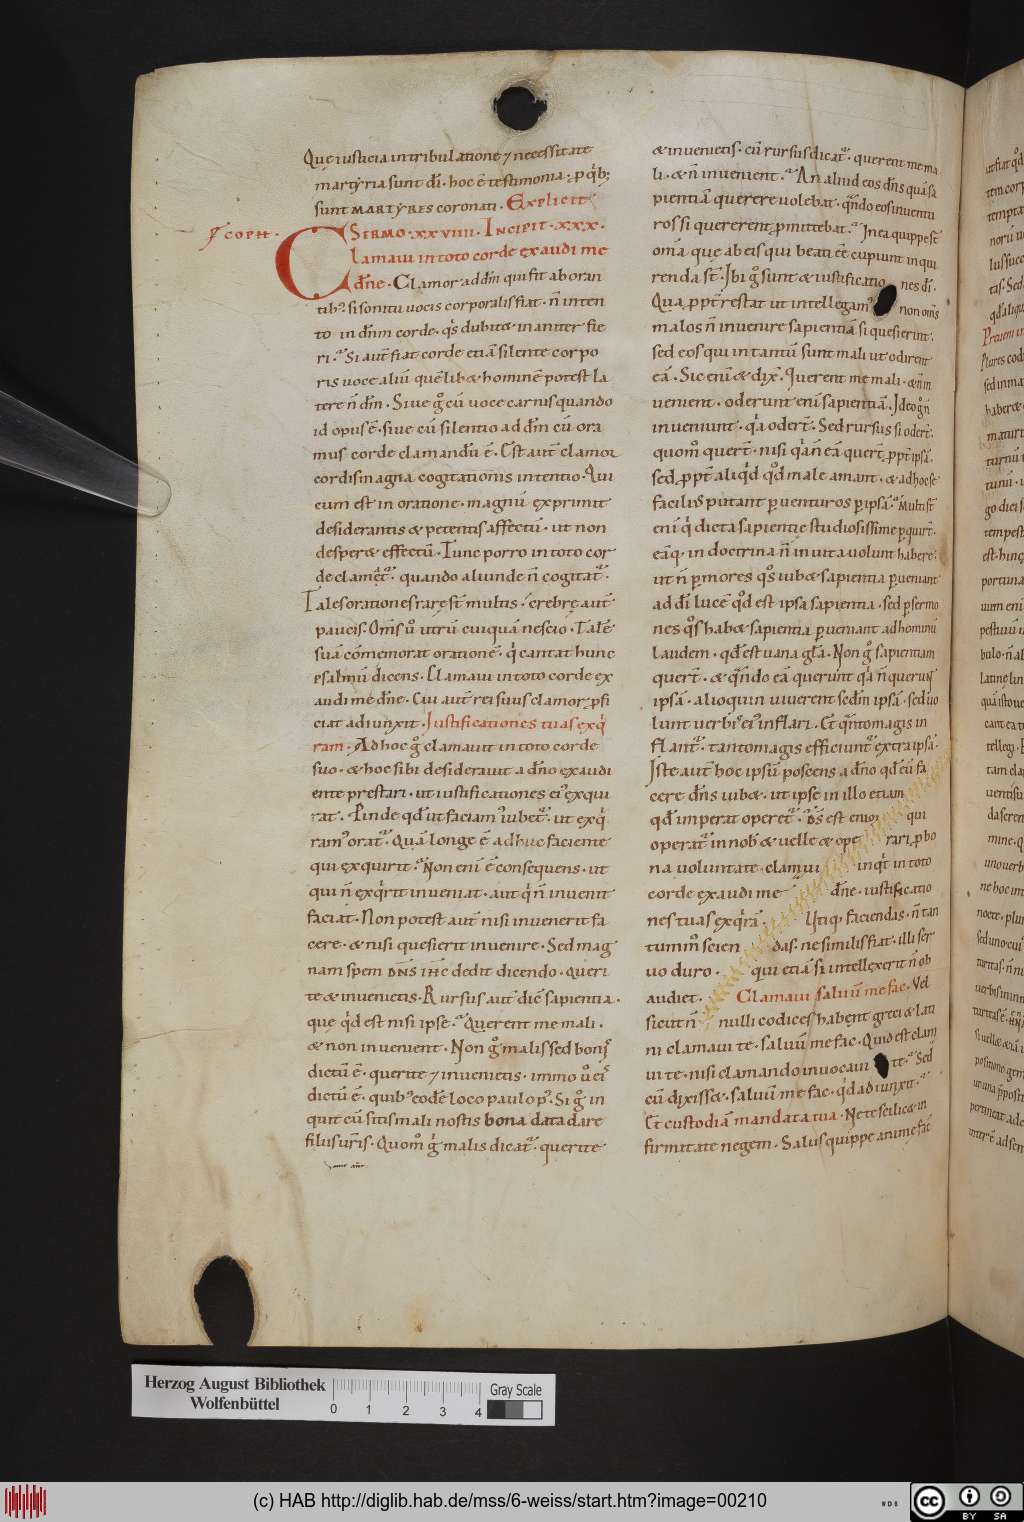 Que iusticia in tribulatione ⁊ necessitate
martyria sunt di̅. hoc e̅ testimonia. p q̇b;
sunt MARTYRES coronati. Explicit
COPH.
SERMO. XXVIIII. INCIPIT. XXX.
Clamaui in toto corde exaudi me
dn̅e. Clamor ad dn̅m qui fit ab oran
tibꝰ si sonitu uocis corporalis fiat. n̅ inten
to in dn̅m corde. q̇s dubitet inaniter fie
ri. Si aut̅ fiat corde etia̅ silente corpo
ris uoce aliu̅ que̅libet homine̅ potest la
tere n̅ dn̅m. Siue g̊ cu̅ uoce carnis quando
id opus e̅. siue cu̅ silentio ad dn̅m cu̅ ora
mus corde clamandu̅ e̅. Est aut̅ clamor
cordis magna cogitationis intentio. Qui
cum est in oratione. magnu̅ exprimit
desiderantis & petentis affectu̅. ut non
desperet effectu̅. Tunc porro in toto cor
de clamet̅. quando aliunde n̅ cogitat̅.
Tales orationes rare st̅ multis. crebre aut̅
paucis. Om̅s u̅ utru̅ cuiqua̅ nescio. Tale̅
sua̅ co̅memorat oratione̅. q̇ cantat hunc
psalmu̅ dicens. Clamaui in toto corde ex
audi me dn̅e. Cui aut̅ rei suus clamor pfi
ciat adiunxit. Iustificationes tuas exq̇
ram. Ad hoc g̊ clamauit in toto corde
suo. & hoc sibi desiderauit a dn̅o exaudi
ente prestari. ut iustificationes eiꝰ exqui
rat. Inde qd̅ ut faciamꝰ iubet̅. ut exq̇
ramꝰ orat̅. Qua̅ longe e̅ adhuc faciente
qui exquirit. Non eni̅ e̅ consequens. ut
qui n̅ exq̇rit inueniat. aut q̇ n̅ inuenit
faciat. Non potest aut̅ nisi inuenerit fa
cere. & nisi quesierit inuenire. Sed mag
nam spem DN̅S IH̅C dedit dicendo. Queri
te & inuenietis. Rursus aut̅ dic̅ sapientia.
que q̇d est nisi ipse. Querent me mali.
& non inuenient. Non g̊ malis sed bonis
dictu̅ e̅. querite ⁊ inuenietis. immo u̅ eis
dictu̅ e̅. quibꝰ eode̅ loco paulo pꝰ. Si g̊ in
quit cu̅ sitis mali nostis bona data dare
filiis uris. Quom̊ g̊ malis dicat̅. querite
& inuenietis. cu̅ rursus dicat̅. querent me ma
li. & n̅ inuenient. An aliud eos dn̅s qua̅ sa
pientia̅ querere uolebat. qn̅do eos inuentu
ros si quererent pmittebat. In ea quippe st̅
om̅a. que ab eis qui beati e̅e cupiunt inqui
renda st̅. Ibi g̊ sunt & iustificatio nes di̅.
Qua ppt̅ restat ut intellegamꝰ non om̅s
malos n̅ inuenire sapientia̅ si quesierint.
sed eos qui in tantu̅ sunt mali ut oderint
ea̅. Sic eni̅ & dix̅. Querent me mali. & n̅ in
uenient. oderunt eni̅ sapientia̅. Ideo g̊ n̅
inueniunt. q̇a oder̅t. Sed rursus si oder̅t.
quom̊ quer̅t. nisi q̇a n̅ ea̅ quer̅t ppt̅ ipsa̅.
sed ppt̅ aliq̇d qd̅ male amant. & ad hoc se
facilius putant puenturos p ipsa̅. Multi st̅
eni̅ q̇ dicta sapientie studiosissime pquir̅t.
ea̅q. in doctrina n̅ in uita uolunt habere.
ut n̅ p mores q̊s iubet sapientia pueniant
ad di̅ luce̅ qd̅ est ipsa sapientia. sed p sermo
nes q̊s habet sapientia pueniant ad hominu̅
laudem. qd̅ est uana gl̅a. Non g̊ sapientiam
quer̅t. & qn̅do ea̅ querunt q̇a n̅ querunt
ipsa̅. alioquin uiuerent sedm̅ ipsa̅. sed uo
lunt uerbis eiꝰ inflari. Et qn̅to magis in
flant̅. tanto magis efficiunt̅ extra ipsa̅.
Iste aut̅ hoc ipsu̅ poscens a dn̅o qd̅ eu̅ fa
cere dn̅s iubet. ut ipse in illo etiam
qd̅ imperat operet̅. DS̅ est enim qui
operat̅ in nob̅ & uelle & ope rari. p bo
na uoluntate. clamaui inq̇t in toto
corde exaudi me dn̅e. iustificatio
nes tuas exq̇ra̅. Utiq. faciendas. n̅ tan
tummo̅ scien das. ne similis fiat. illi ser
uo duro. qui etia̅ si intellexerit n̅ ob
audiet. Clamaui saluu̅ me fac. Vel
sicut n̅ nulli codices habent greci & lati
ni clamaui te. saluu̅ me fac. Quid est clam
ui te. nisi clamando inuocaui te. Sed
cu̅ dixisset. saluu̅ me fac. q̇d adiunxit.
Et custodia̅ mandata tua. Ne te scilicet in
firmitate negem. Salus quippe anime fac
Herzog August Bibliothek
Wolfenbüttel
0 1 2 3 4
Gray Scale
(c) HAB http://diglib.hab.de/mss/6-weiss/start.htm?image=00210
BY SA